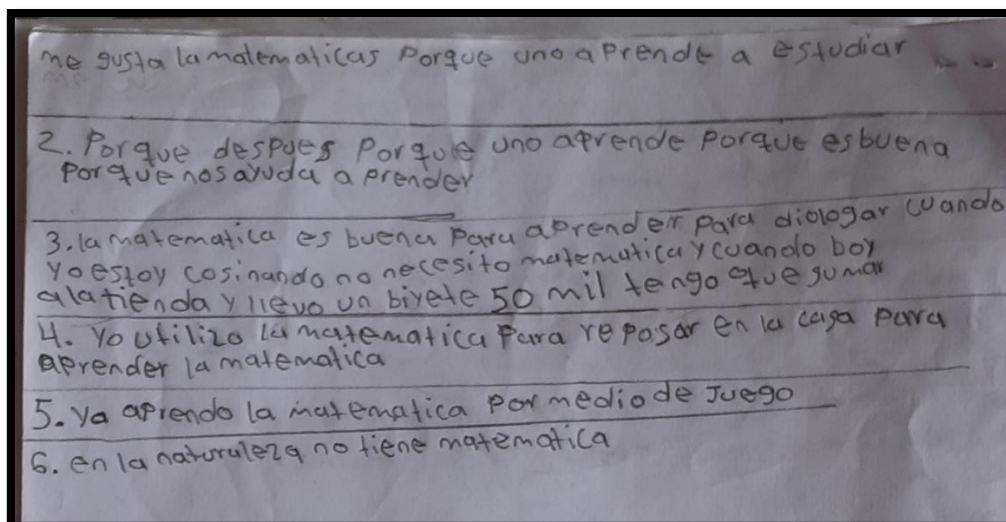 me gusta la matematicas porque uno aprende a estudiar
2. Porque despues porque uno aprende porque es buena
porque nos ayuda a prender
3. la matematica es buena para aprender para diologar cuando
yo estoy cosinando no necesito matematica y cuando boy
a la tienda y llevo un biyete 50 mil tengo que sumar
4. Yo utilizo la matematica para reposar en la casa para
aprender la matematica
5. Ya aprendo la matematica por medio de Juego
6. en la naturaleza no tiene matematica